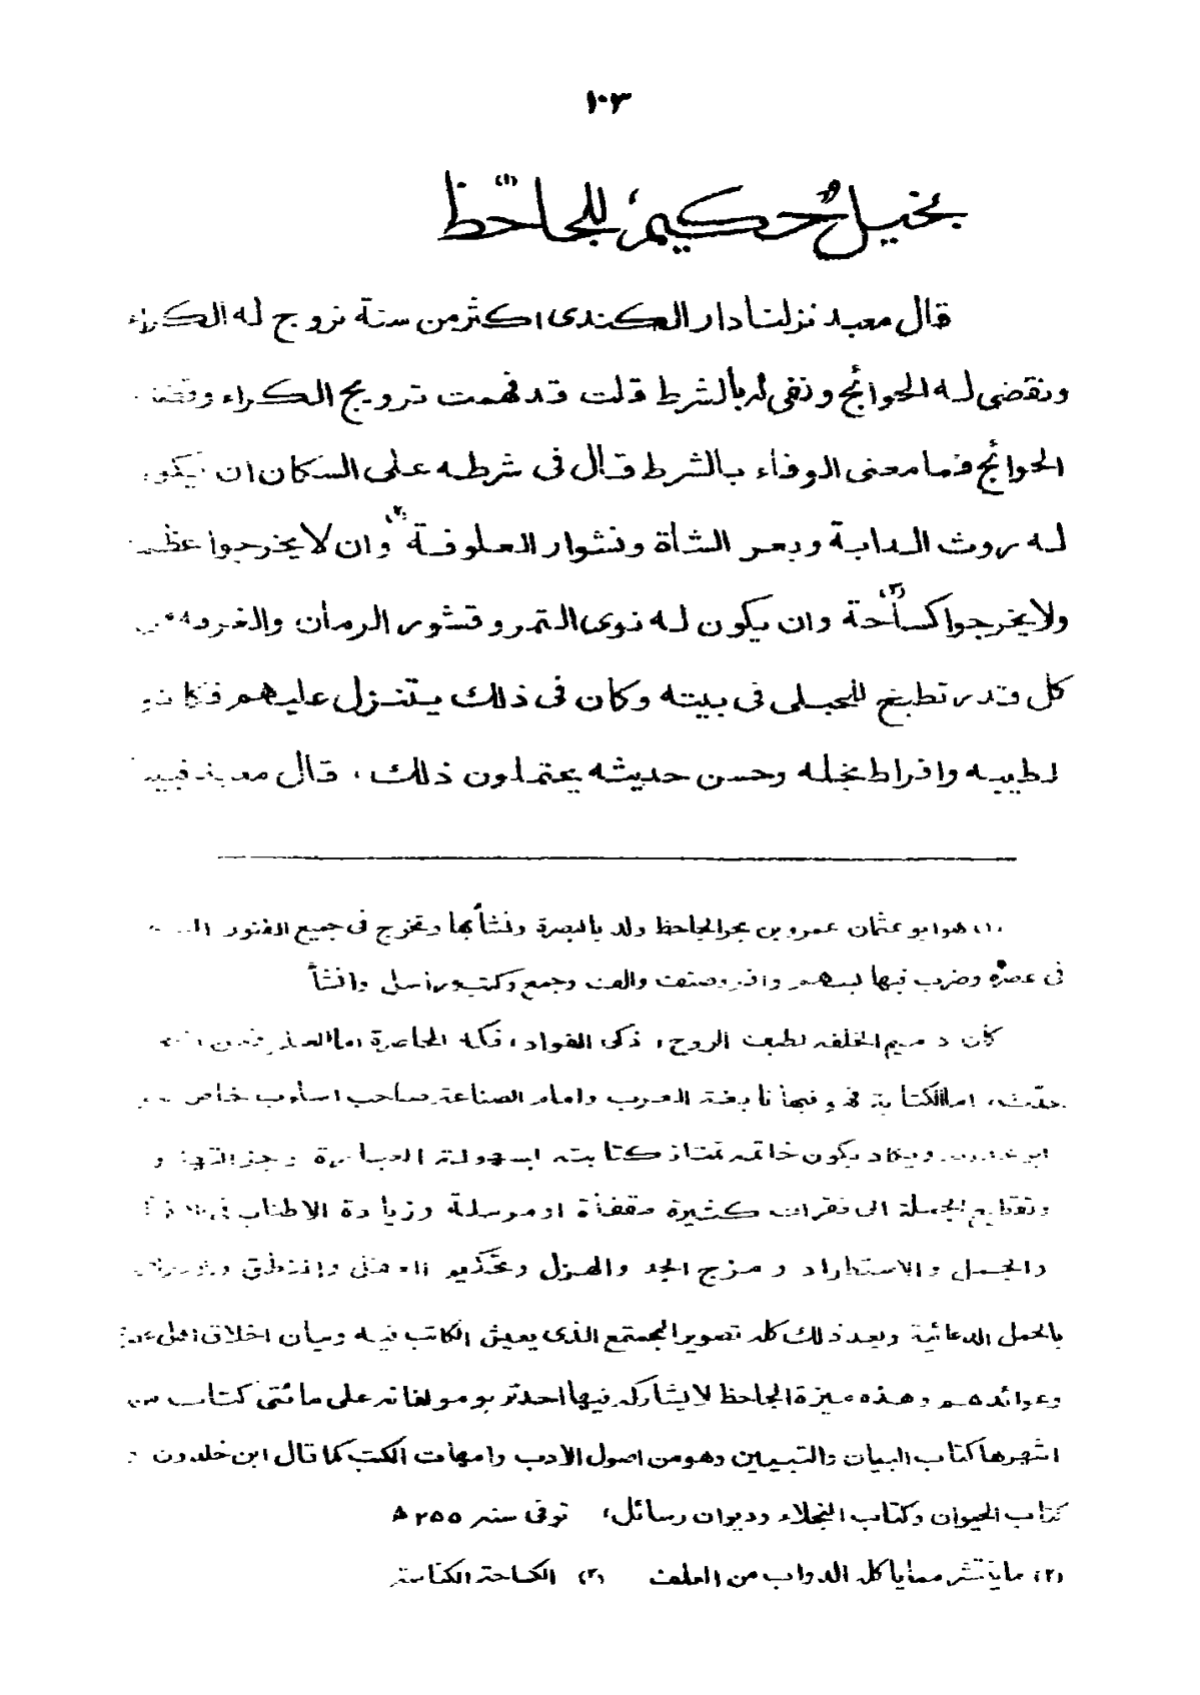 ١٠٣
بخيل حكيم للجاحظ (١)
قال معبد نزلنا دار الكندى اكثر من سنة نروج له الكراء
ونقضى له الحوائج ونفى له بالشرط قلت قد فهمت ترويج الكراء وقضاء
الحوائج فما معنى الوفاء بالشرط قال فى شرطه على السكان ان يكون
له روث الدابة وبعر الشاة ونشوار العلوفة (٢) وان لا يخرجوا عظما
ولا يخرجوا كساحة (٣) وان يكون له نوى التمر وقشور الرمان والغرفة من
كل قدر تطبخ للحبلى فى بيته وكان فى ذلك يتنزل عليهم فكانوا
لطيبه وافراط بخله وحسن حديثه يحتملون ذلك، قال معبد فبينا
(١) هو ابو عثمان عمرو بن بحر الجاحظ ولد بالبصرة ونشأ بها وتخرج فى جميع الفنون
فى عصره وضرب فيها بسهم وافر وصنف والف وجمع وكتب وراسل وانشأ
كان دميم الخلقه لطيف الروح، ذكى الفواد، فكه المحاضرة اما العلم فمن
حدّث، اما الكتابة فهو فيها نابغة العرب وامام الصناعة صاحب اسلوب خاص
ويكاد يكون خاتمه تمتاز كتابته بسهولة العبارة وجزالتها و
وتقطيع الجملة الى فقرات كثيرة مقفاة او مرسلة وزيادة الاطناب فى
والجمل والاستطراد ومزج الجد والهزل وتحكيم العقل والمنطق
بالجمل الدعائية وبعد ذلك كله تصوير المجتمع الذى يعيش الكاتب فيه وبيان اخلاق اهل عصره
وعوائدهم وهذه ميزة الجاحظ لا يشاركه فيها احد تربو مولفاته على مائتى كتاب من
اشهرها كتاب البيان والتبيين وهو من اصول الادب وامهات الكتب كما قال ابن خلدون و
كتاب الحيوان وكتاب البخلاء وديوان رسائل، توفى سنه ٢٥٥ ه
(٢) ما ينتشر مما يأكل الدواب من العلف (٣) الكساحة الكناسة